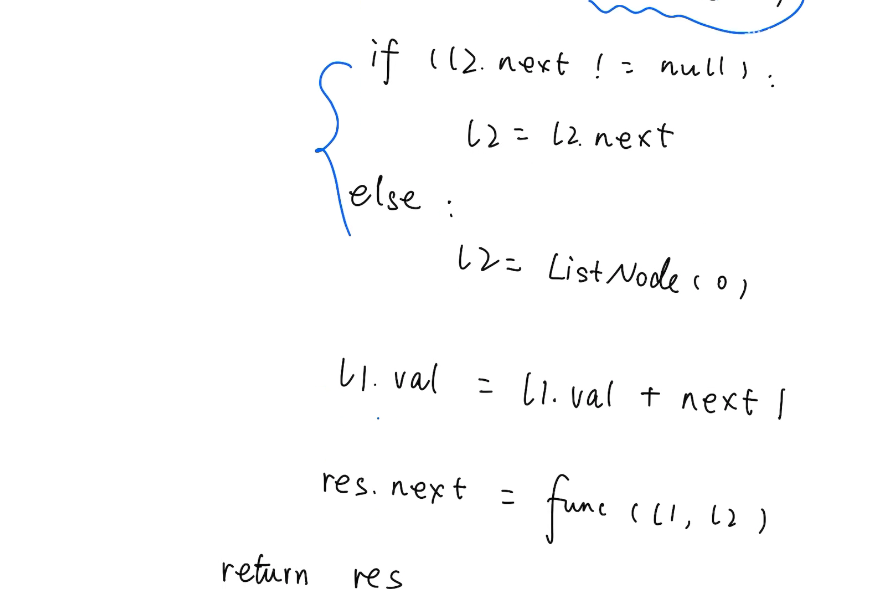 if (l2.next != null):
l2 = l2.next
else :
l2 = ListNode(0)
l1.val = l1.val + next1
res.next = func(l1, l2)
return res